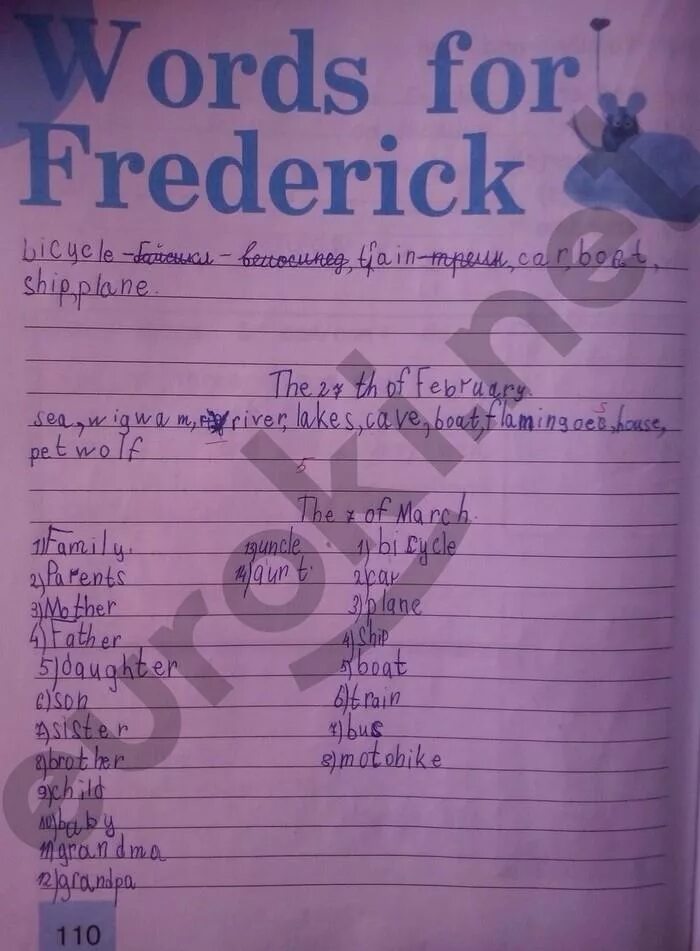 Words for
Frederick
bicycle -байсикл - велосипед, train-трейн, car, boat,
ship, plane.
The 27 th of February.
sea, wigwam, river, lakes, cave, boat, flamingoes, house,
pet wolf
5
The 7 of March.
1) Family. 13) uncle 1) bicycle
2) Parents 14) aunt. 2) car
3) Mother 3) plane
4) Father 4) ship
5) daughter 5) boat
6) son 6) train
7) sister 7) bus
8) brother 8) motobike
9) child
10) baby
11) grandma
12) grandpa
110
euroki.net